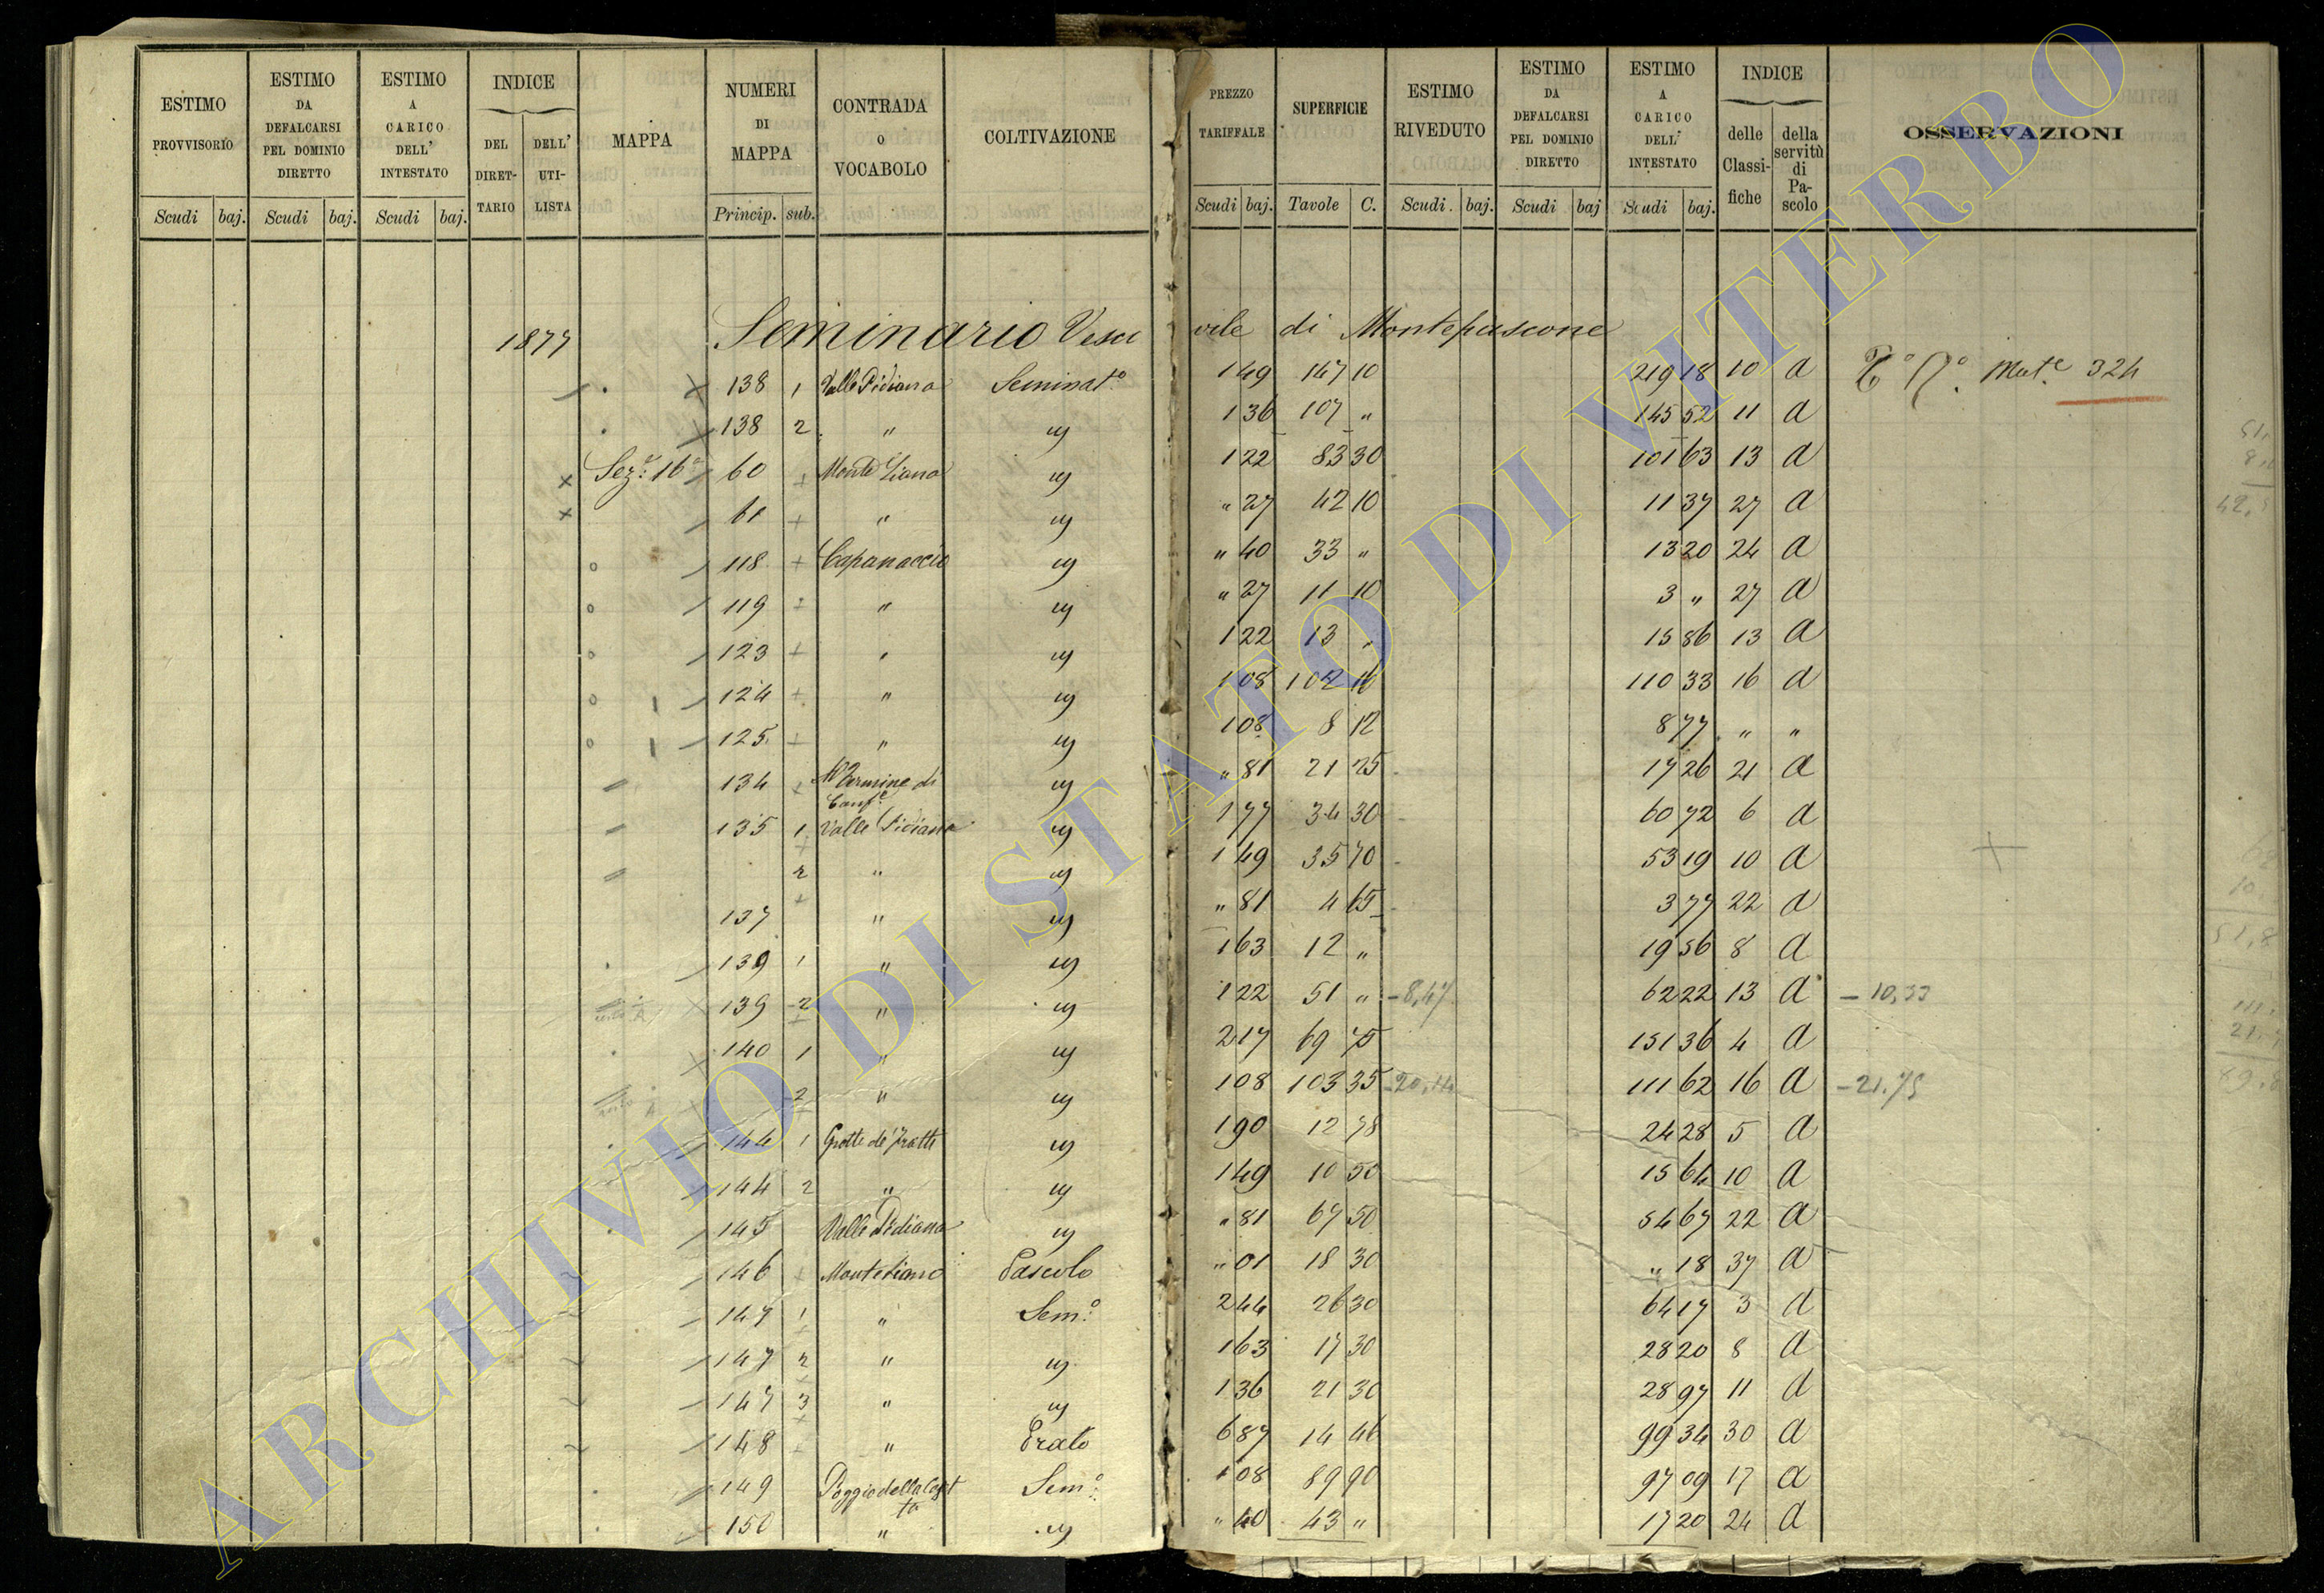 ESTIMO PROVVISORIO | ESTIMO DA DEFALCARSI PEL DOMINIO DIRETTO | ESTIMO A CARICO DELL' INTESTATO | INDICE | MAPPA | NUMERI DI MAPPA | CONTRADA O VOCABOLO | COLTIVAZIONE | PREZZO TARIFFALE | SUPERFICIE | ESTIMO RIVEDUTO | ESTIMO DA DEFALCARSI PEL DOMINIO DIRETTO | ESTIMO A CARICO DELL' INTESTATO | INDICE | OSSERVAZIONI
DEL DIRET-TARIO | DELL' UTI-LISTA | delle Classi-fiche | della servitù di Pa-scolo
Scudi | baj. | Scudi | baj. | Scudi | baj. | Princip. | sub. | Scudi | baj. | Tavole | C. | Scudi. | baj. | Scudi | baj | Scudi | baj.
1877 Seminario Vesco vile di Montefiascone
138 1 Valle Pidiana Seminat.o 1 49 147 10 219 18 10 a Mut.e 324
138 2 " " 1 36 107 " 145 52 11 a
Sez.e 16a 60 Monte Liano " 1 22 83 30 101 63 13 a
61 " " " 27 42 10 11 37 27 a
118 Capanaccio " " 40 33 " 13 20 24 a
119 " " " 27 11 10 3 " 27 a
123 " " 1 22 13 " 15 86 13 a
124 " " 1 08 102 16 110 33 16 a
125 " " 1 08 8 12 8 77 " "
134 Al Termine di " " 81 21 25 17 26 21 a
135 1 Valle Pidiana " 1 77 34 30 60 72 6 a
2 " " 1 49 35 70 53 19 10 a
137 " " " 81 4 65 3 77 22 a
139 1 " " 1 63 12 " 19 56 8 a
139 2 " " 1 22 51 " -8,47 62 22 13 a -10,33
140 1 " " 2 17 69 75 151 36 4 a
2 " " 1 08 103 35 111 62 16 a -21.75
144 1 Grotte de' Fratti " 1 90 12 78 24 28 5 a
144 2 " " 1 49 10 50 15 64 10 a
145 Valle Pidiana " " 81 67 50 54 67 22 a
146 Monteliano Pascolo " 01 18 30 " 18 37 a
147 1 " Sem.o 2 44 26 30 64 17 3 a
147 2 " " 1 63 17 30 28 20 8 a
147 3 " " 1 36 21 30 28 97 11 a
148 " Prato 6 87 14 46 99 34 30 a
149 Poggio della Cost ta Sem.o 1 08 89 90 97 09 17 a
150 " " " 40 43 " 17 20 24 a
ARCHIVIO DI STATO DI VITERBO